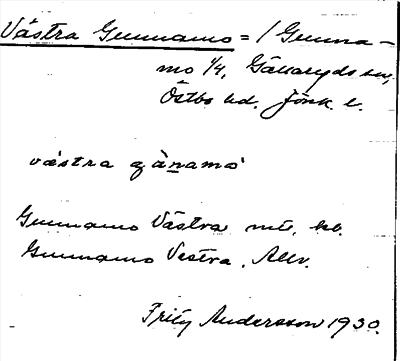 Västra Gunnamo = / Gunna-
mo 1/4, Gällaryds sn,
Östbo hd. Jönk. l.
västra gànamó
Gunnamo Västra mtl. kb.
Gunnamo Vestra. Allv.
Frity Andersson 1930.